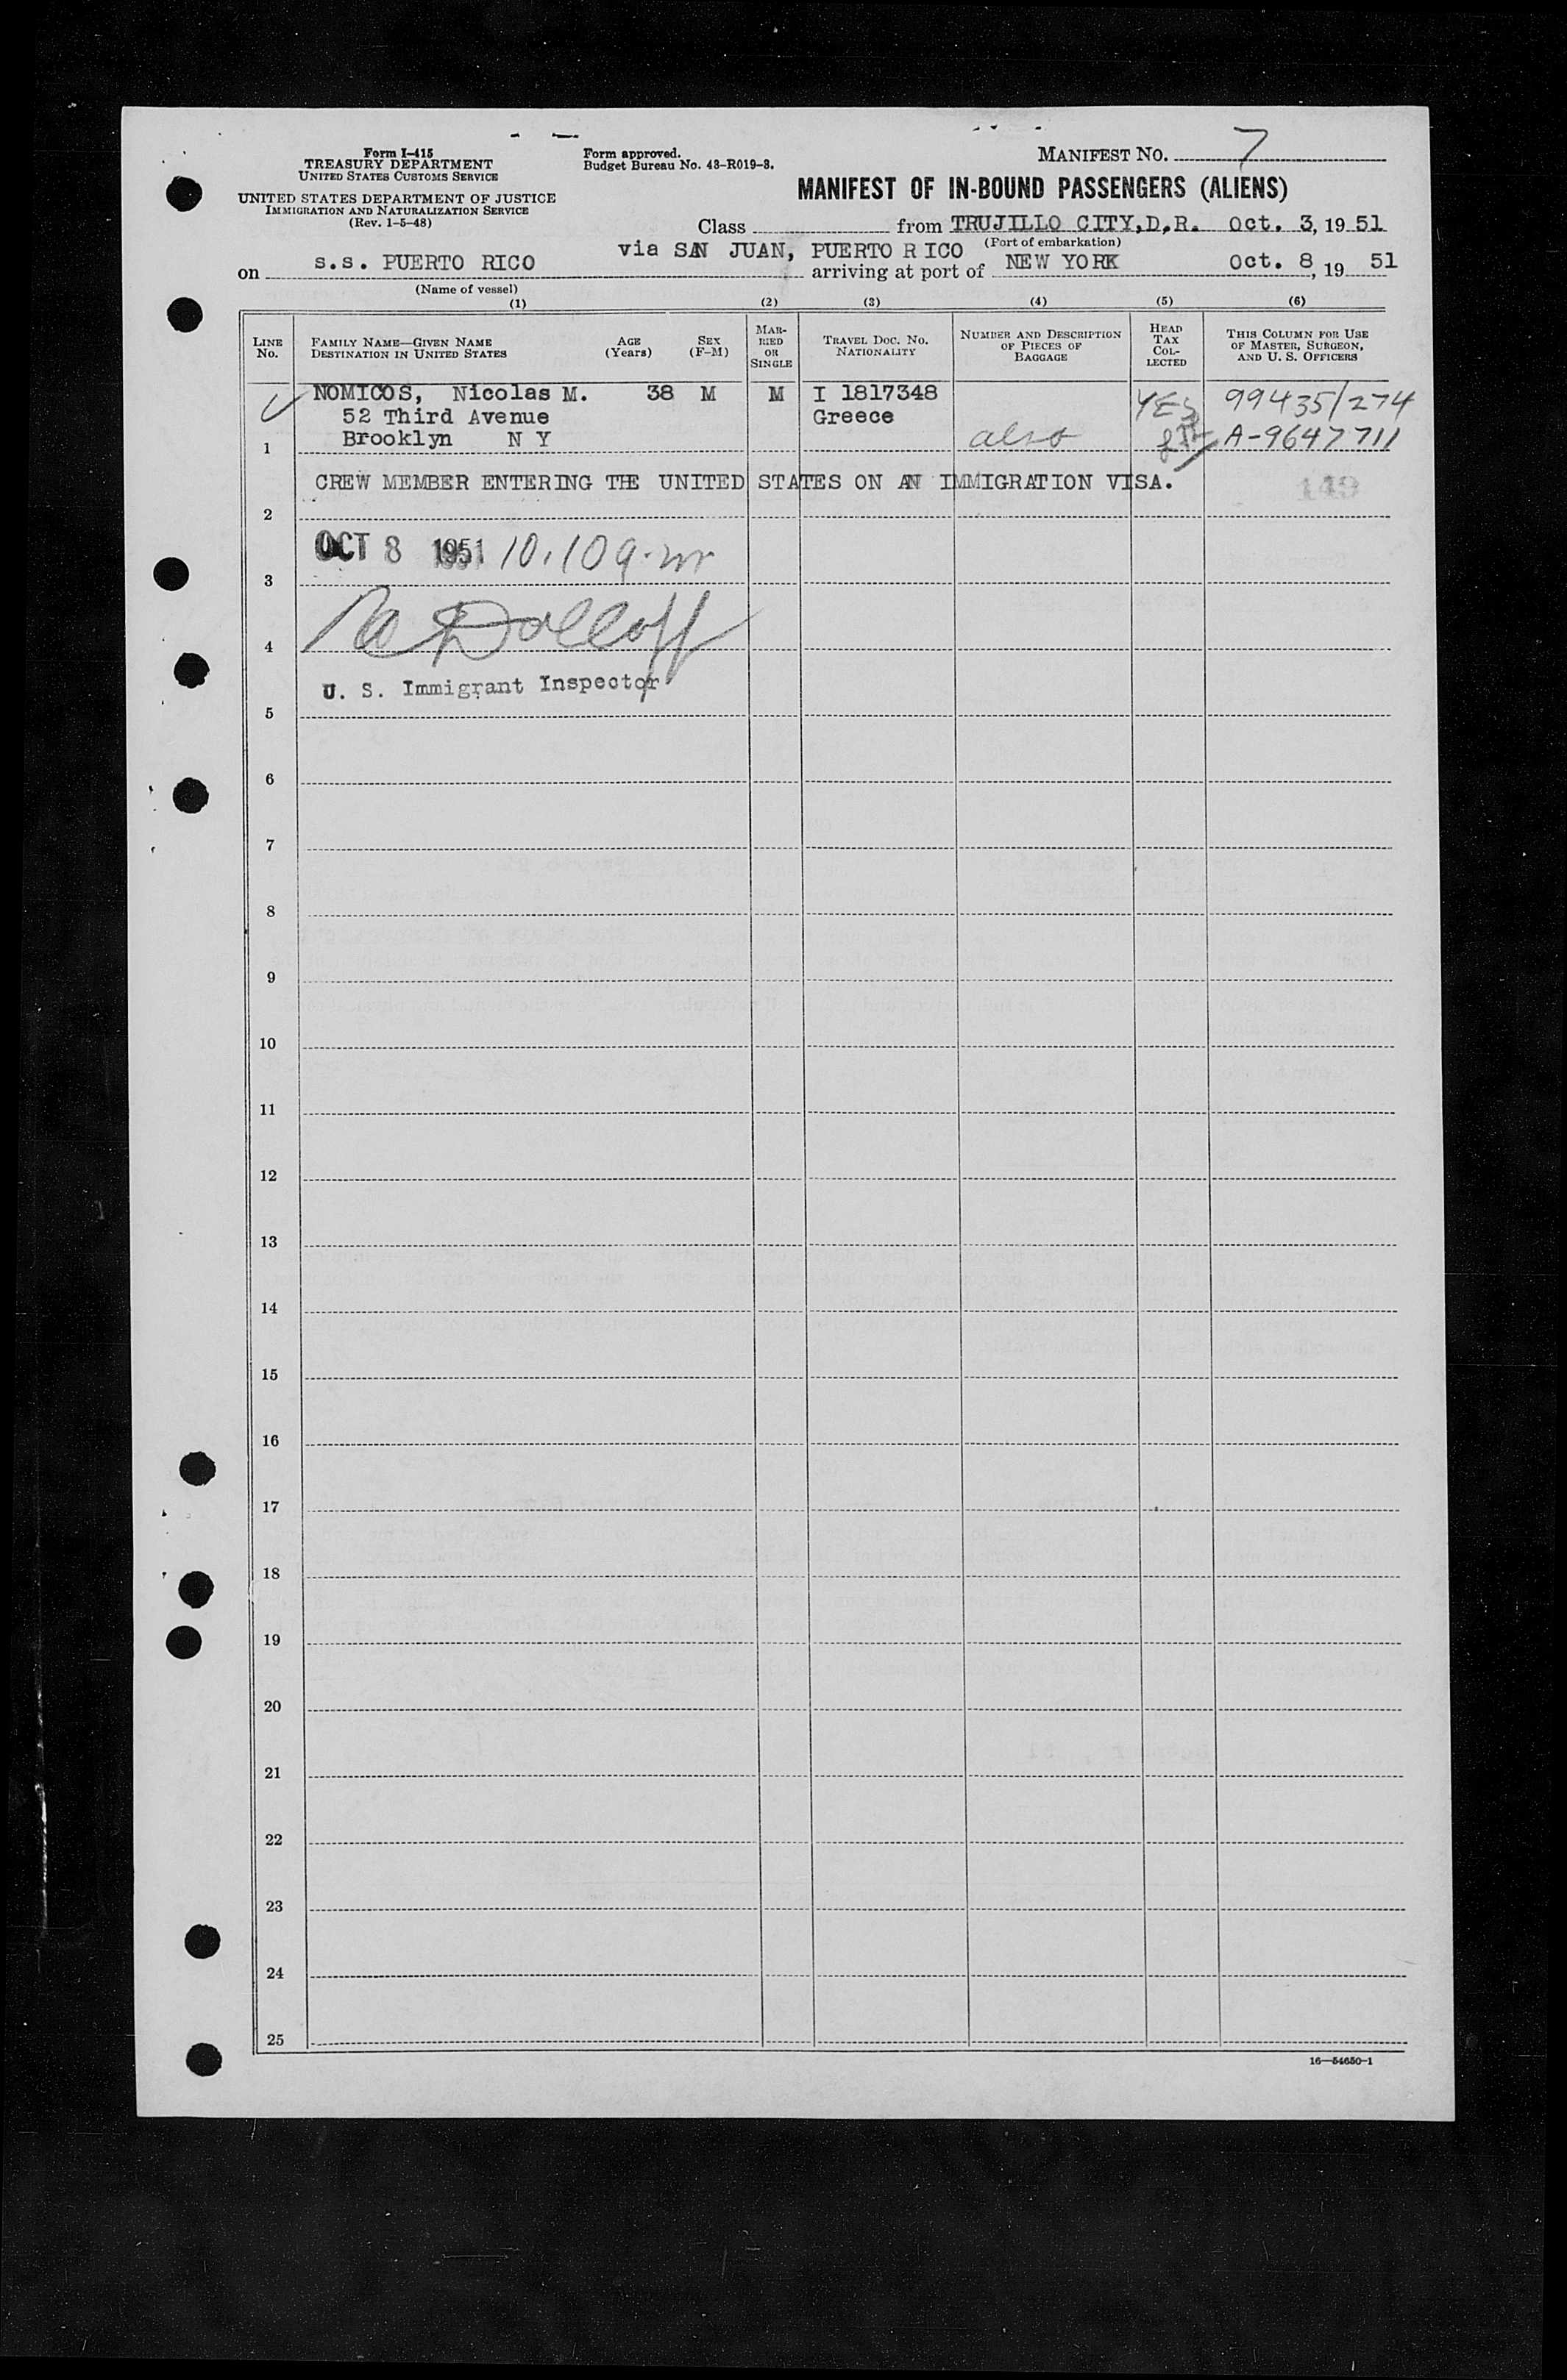 Form I-415
TREASURY DEPARTMENT
UNITED STATES CUSTOMS SERVICE
UNITED STATES DEPARTMENT OF JUSTICE
IMMIGRATION AND NATURALIZATION SERVICE
(Rev. 1-5-48)
Form approved.
Budget Bureau No. 43-R019-3.
MANIFEST NO. 7
MANIFEST OF IN-BOUND PASSENGERS (ALIENS)
Class from TRUJILLO CITY, D.R. Oct. 3, 19 51
(Port of embarkation)
via SAN JUAN, PUERTO RICO
on s.s. PUERTO RICO arriving at port of NEW YORK Oct. 8, 19 51
(Name of vessel)
(1) (2) (3) (4) (5) (6)
LINE NO.
FAMILY NAME—GIVEN NAME
DESTINATION IN UNITED STATES
AGE (Years)
SEX (F-M)
MARRIED OR SINGLE
TRAVEL DOC. NO. NATIONALITY
NUMBER AND DESCRIPTION OF PIECES OF BAGGAGE
HEAD TAX COLLECTED
THIS COLUMN FOR USE OF MASTER, SURGEON, AND U. S. OFFICERS
NOMICOS, Nicolas M. 38 M M I 1817348 YES 99435/274
52 Third Avenue Greece
1 Brooklyn N Y also A-9647711
CREW MEMBER ENTERING THE UNITED STATES ON AN IMMIGRATION VISA. 149
2
OCT 8 1951 10.10 a.m
3
4
U. S. Immigrant Inspector
5
6
7
8
9
10
11
12
13
14
15
16
17
18
19
20
21
22
23
24
25
16—54650-1